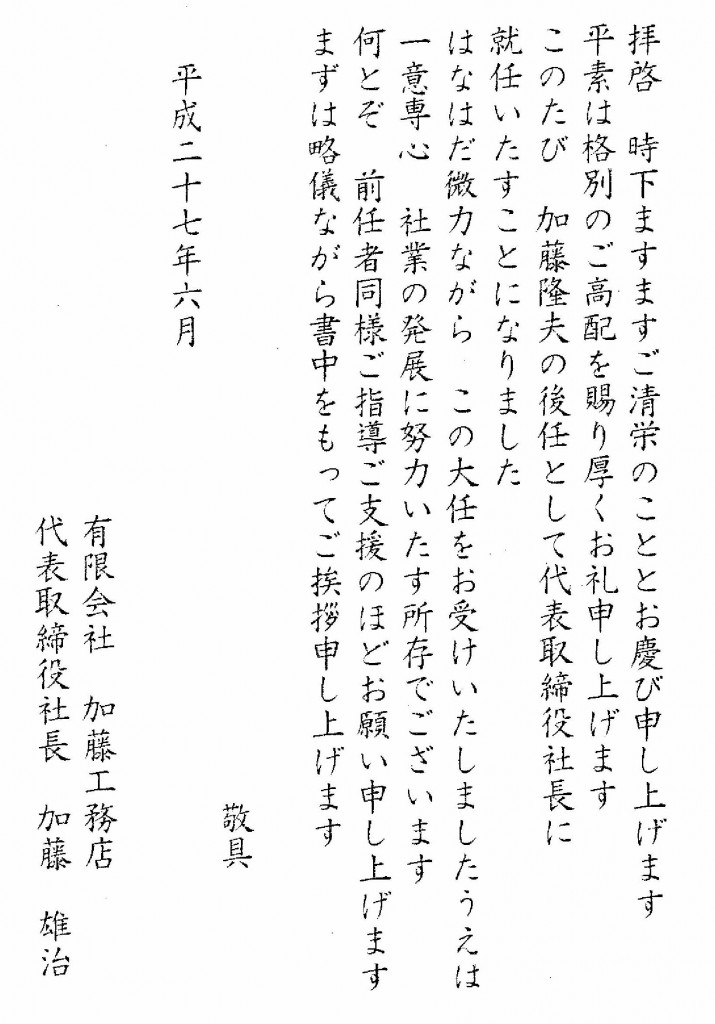 拝啓　時下ますますご清栄のこととお慶び申し上げます
平素は格別のご高配を賜り厚くお礼申し上げます
このたび　加藤隆夫の後任として代表取締役社長に
就任いたすことになりました
はなはだ微力ながら　この大任をお受けいたしましたうえは
一意専心　社業の発展に努力いたす所存でございます
何とぞ　前任者同様ご指導ご支援のほどお願い申し上げます
まずは略儀ながら書中をもってご挨拶申し上げます
敬具
平成二十七年六月
有限会社　加藤工務店
代表取締役社長　加藤　雄治